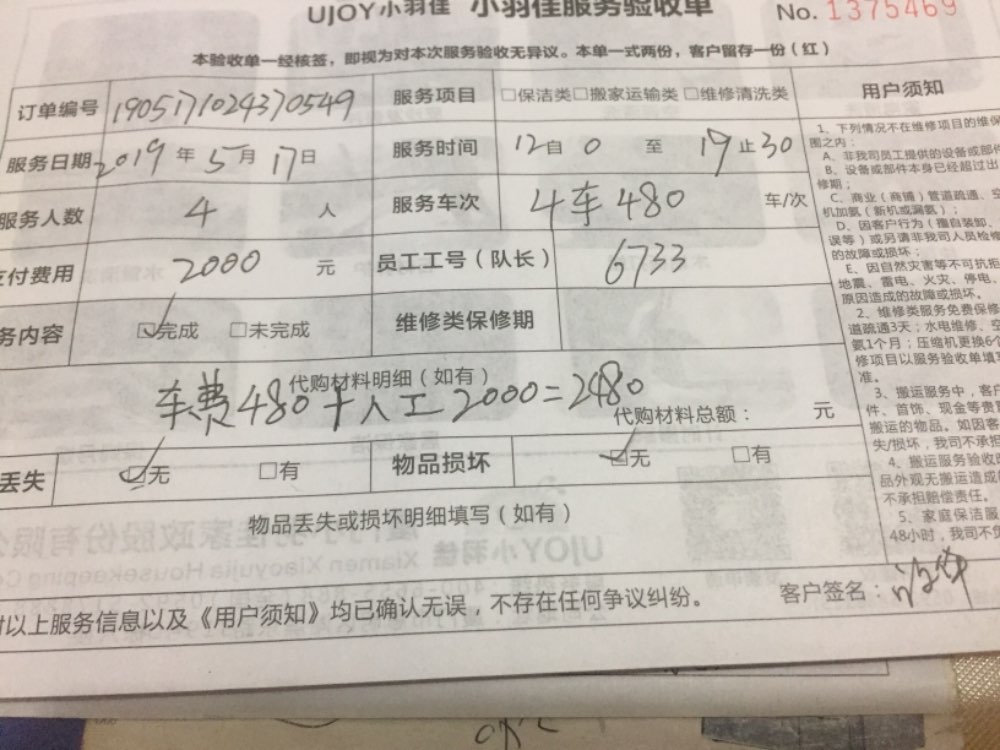 UJOY小羽佳 小羽佳服务验收单 No. 1375469
本验收单一经核签，即视为对本次服务验收无异议。本单一式两份，客户留存一份（红）
订单编号 1905171024370549 服务项目 □保洁类□搬家运输类□维修清洗类 用户须知
服务日期 2019 年 5 月 17 日 服务时间 12 自 0 至 19 止 30
服务人数 4 人 服务车次 4车480 车/次
支付费用 2000 元 员工工号（队长） 6733
务内容 ☑完成 □未完成 维修类保修期
代购材料明细（如有）
车费480+人工2000=2480
代购材料总额： 元
丢失 ☑无 □有 物品损坏 ☑无 □有
物品丢失或损坏明细填写（如有）
对以上服务信息以及《用户须知》均已确认无误，不存在任何争议纠纷。 客户签名：
1、下列情况不在维修项目的维保
围之内：
A、非我司员工提供的设备或部件
B、设备或部件本身已经超过出
修期；
C、商业（商铺）管道疏通、空
机加氨（新机或漏氨）；
D、因客户行为（擅自装卸、
误等）或另请非我司人员检修
的故障或损坏；
E、因自然灾害等不可抗拒
地震、雷电、火灾、停电、
原因造成的故障或损坏。
2、维修类服务免费保修
道疏通3天；水电维修、空
氨1个月；压缩机更换6个
修项目以服务验收单填写
准。
3、搬运服务中，客户
件、首饰、现金等贵重
搬运的物品。如因客
失/损坏，我司不承担
4、搬运服务验收改
品外观无搬运造成
不承担赔偿责任。
5、家庭保洁服
48小时，我司不